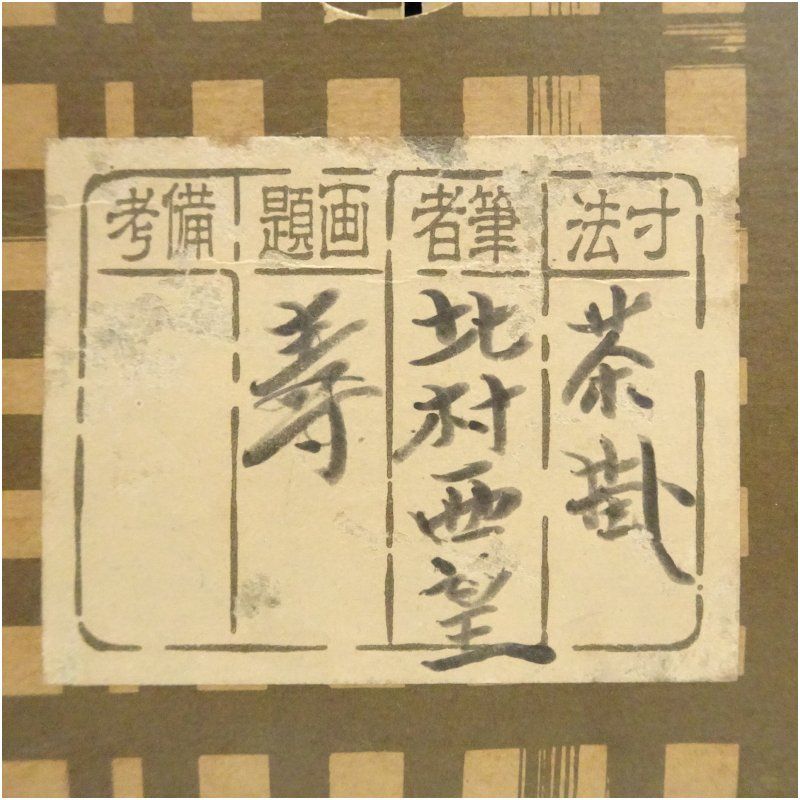 寸法
茶掛
筆者
北村西望
画題
寿
備考